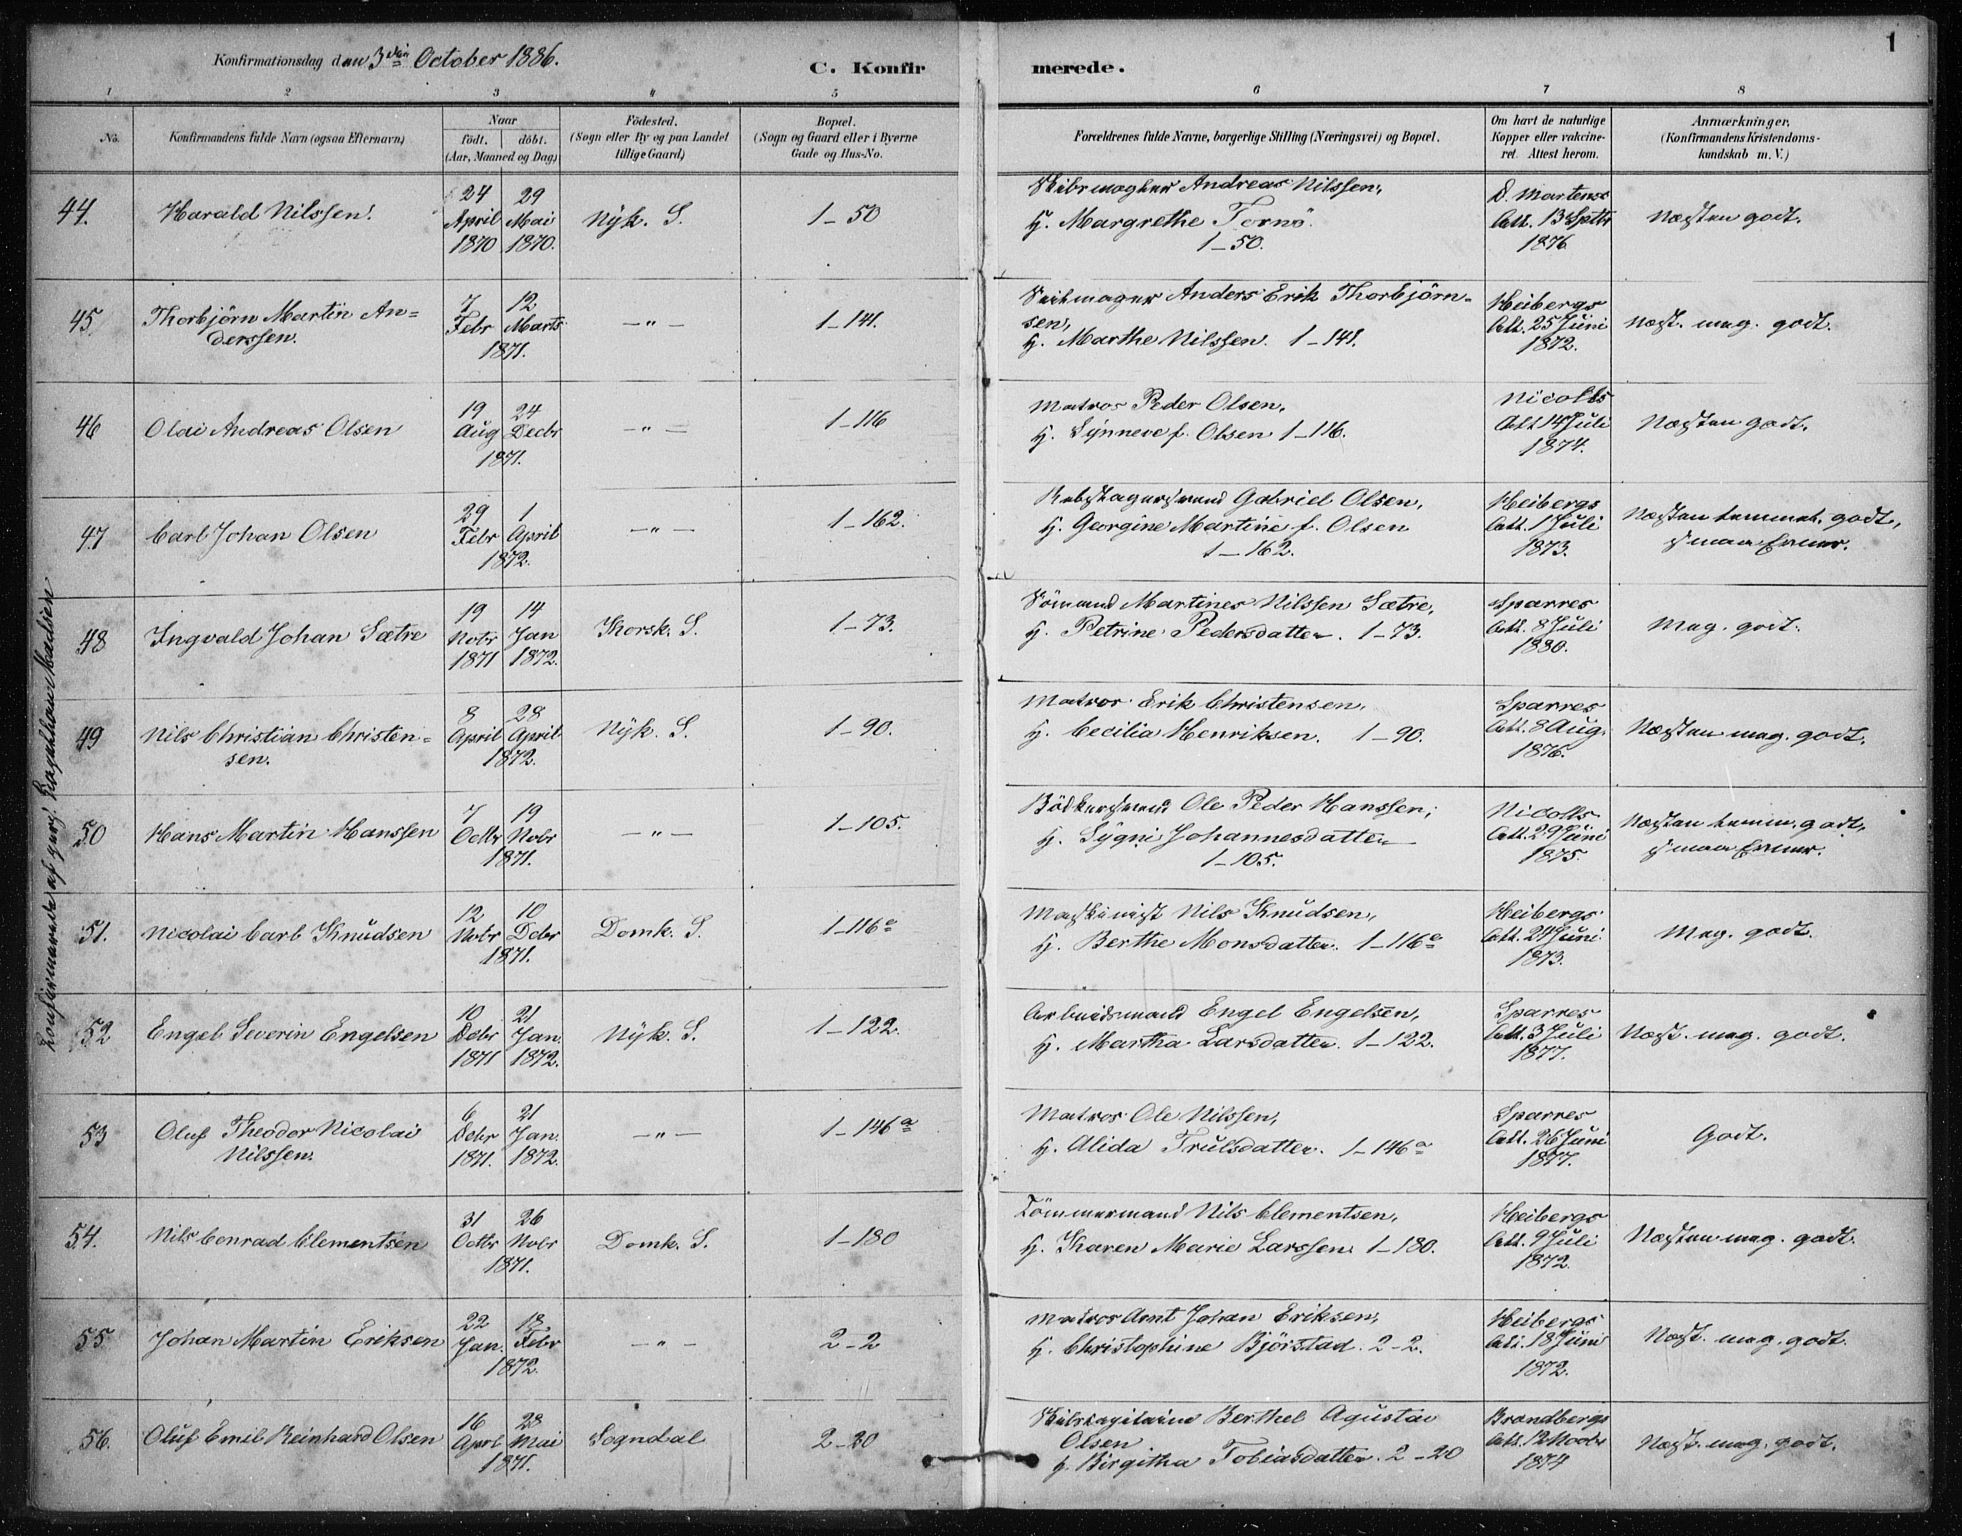 1
Konfirmationsdag den 3die October 1886.
C. Konfirmerede.
1 2 3 4 5 6 7 8
No.
Konfirmandens fulde Navn (ogsaa Efternavn)
Naar
født. døbt.
(Aar, Maaned og Dag)
Fødested.
(Sogn eller By og paa Landet
tillige Gaard)
Bopæl.
(Sogn og Gaard eller i Byerne
Gade og Hus-No.
Forældrenes fulde Navne, borgerlige Stilling (Næringsvei) og Bopæl.
Om havt de naturlige
Kopper eller vakcine-
ret. Attest herom.
Anmærkninger.
(Konfirmandens Kristendoms-
kundskab m. V.)
44. Harald Nilssen.
24 April 1870
29 Mai 1870.
Nyk. S.
1-50
Andreas Nilssen,
H. Margrethe Tornö.
1-50.
D. Martens
Att. 13 Sptbr
1876
Næsten godt.
45. Thorbjörn Martin An=
derssen.
7 Febr
12 Marts
1871.
-"-
1-141.
Seilmager Anders Erik Thorbjörn-
sen,
H. Marthe Nilssen. 1-141.
Heibergs
Att. 25 Juni
1872.
Næst. meg. godt.
46 Olai Andreas Olsen
19 Aug
24 Decbr
1871.
-"-
1-116
Matros Peder Olsen,
H. Synneve f. Olsen 1-116.
Nicolls
Att 14 Juli
1874.
Næsten godt.
47 Carl Johan Olsen
29 Febr
1 April
1872.
-"-
1-162.
Rebslagersvend Gabriel Olsen,
H. Georgine Martine f. Olsen
1-162.
Heibergs
Att. 1 Juli
1873.
Næsten temmel. godt,
48 Ingvald Johan Sætre
19 Novbr 1871
14 Jan 1872.
Korsk. S.
1-73.
Sömand Martines Nilssen Sætre,
H. Petrine Pedersdatter. 1-73.
Sparres
Att. 8 Juli
1880.
Meg. godt.
49 Nils Christian Christen=
sen.
8 April
28 April
1872.
Nyk. S.
1-90.
Matros Erik Christensen,
H. Cecilia Henriksen. 1-90.
Sparres
Att. 8 Aug.
1876.
Næsten meg. godt.
50 Hans Martin Hanssen
7 Octbr
19 Novbr
1871.
-"-
1-105.
Bödkersvend Ole Peder Hanssen,
H. Sygni Johannesdatter
1-105.
Nicolls
Att. 29 Juni
1875.
Næsten temm. godt,
51. Nicolai Carl Knudsen
12 Novbr
10 Debr
1871.
Domk. S.
1-116a
Maskinist Nils Knudsen,
H. Berthe Monsdatter. 1-116a
Heibergs
Att. 24 Juni
1873.
Meg. godt.
52 Engel Severin Engelsen
10 Debr 1871
21 Jan. 1872.
Nyk. S.
1-122.
Arbeidsmand Engel Engelsen,
H. Martha Larsdatter. 1-122.
Sparres
Att. 3 Juli
1877.
Næst. meg. godt.
53 Oluf Theodor Nicolai
Nilssen.
6 Debr 1871.
21 Jan. 1872.
-"-
1-146a
Matros Ole Nilssen,
H. Alida Trulsdatter. 1-146a
Sparres
Att. 26 Juni
1877.
Godt.
54. Nils Conrad Clementsen
31 Octbr
26 Novbr
1871.
Domk. S.
1-180
Tömmermand Nils Clementsen,
H. Karen Marie Larssen. 1-180.
Heibergs
Att. 9 Juli
1872.
Næsten meg. godt.
55 Johan Martin Eriksen
22 Jan.
18 Febr
1872.
-"-
2-2
Matros Arnt Johan Eriksen,
H. Christophine Bjørstad. 2-2.
Heibergs
Att. 18 Juni
1872.
Næst. meg. godt.
56. Oluf Emil Reinhard Olsen
16 Aprl
28 Mai
1871.
Sogndal
2-20
Skibscapitaine Berthel Agustav
Olsen
H. Birgitha Tobiasdatter. 2-20
Brandbergs
Att. 12 Novbr
1874
Næst. meg. godt.